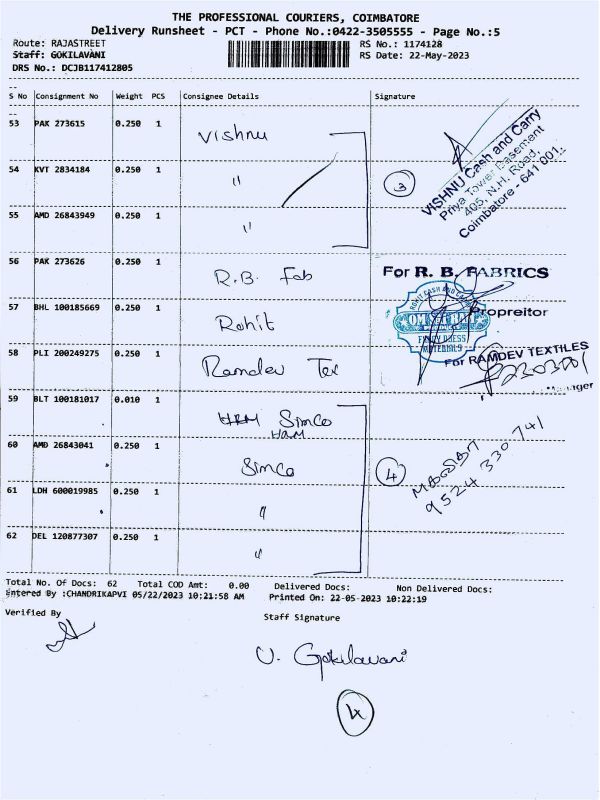 THE PROFESSIONAL COURIERS, COIMBATORE
Delivery Runsheet - PCT - Phone No.:0422-3505555 - Page No.:5
Route: RAJASTREET RS No.: 1174128
Staff: GOKILAVANI RS Date: 22-May-2023
DRS No.: DCJB117412805
S No Consignment No Weight PCS Consignee Details Signature
53 PAK 273615 0.250 1 Vishnu
54 KVT 2834184 0.250 1 "
55 AMD 26843949 0.250 1 "
3
VISHNU Cash and Carry
Priya Tower Basement
405, N.H. Road,
Coimbatore - 641 001.
56 PAK 273626 0.250 1 R.B. Fab
For R. B. FABRICS
Propreitor
57 BHL 100185669 0.250 1 Rohit
ROHIT CASH AND
FANCY DRESS
MATERIALS
58 PLI 200249275 0.250 1 Ramdev Tex
For RAMDEV TEXTILES
Manager
59 BLT 100181017 0.010 1 HRM Simco
HAM
60 AMD 26843041 0.250 1 Simco
61 LDH 600019985 0.250 1 "
62 DEL 120877307 0.250 1 "
4
9524 330 741
Total No. Of Docs: 62 Total COD Amt: 0.00 Delivered Docs: Non Delivered Docs:
Entered By :CHANDRIKAPVI 05/22/2023 10:21:58 AM Printed On: 22-05-2023 10:22:19
Verified By Staff Signature
V. Gokilavani
4